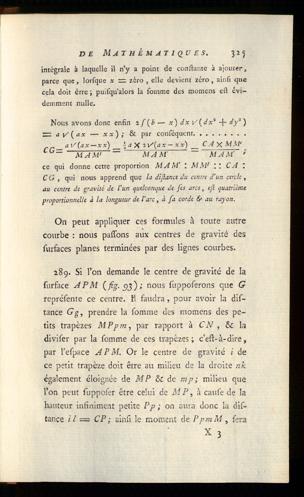 DE MATHÉMATIQUES. 325
intégrale à laquelle il n'y a point de constante à ajouter,
parce que, lorsque x = zéro, elle devient zéro, ainsi que
cela doit être; puisqu'alors la somme des momens est évi-
demment nulle.
Nous avons donc enfin 2 ∫(b — x) dx √(dx² + dy²)
= a √(ax — xx); & par conséquent. . . . . . . . .
CG = a√(ax—xx) / MAM' = ½a × 2√(ax—xx) / MAM' = CA × MM' / MAM' ;
ce qui donne cette proportion MAM' : MM' :: CA :
CG, qui nous apprend que la distance du centre d'un cercle,
au centre de gravité de l'un quelconque de ses arcs, est quatrième
proportionnelle à la longueur de l'arc, à sa corde & au rayon.
On peut appliquer ces formules à toute autre
courbe : nous passons aux centres de gravité des
surfaces planes terminées par des lignes courbes.
289. Si l'on demande le centre de gravité de la
surface APM (fig. 93); nous supposerons que G
représente ce centre. Il faudra, pour avoir la dis-
tance Gg, prendre la somme des momens des pe-
tits trapèzes MPpm, par rapport à CN, & la
diviser par la somme de ces trapèzes; c'est-à-dire,
par l'espace APM. Or le centre de gravité i de
ce petit trapèze doit être au milieu de la droite nk
également éloignée de MP & de mp; milieu que
l'on peut supposer être celui de MP, à cause de la
hauteur infiniment petite Pp; on aura donc la dis-
tance il = CP; ainsi le moment de PpmM, sera
X 3